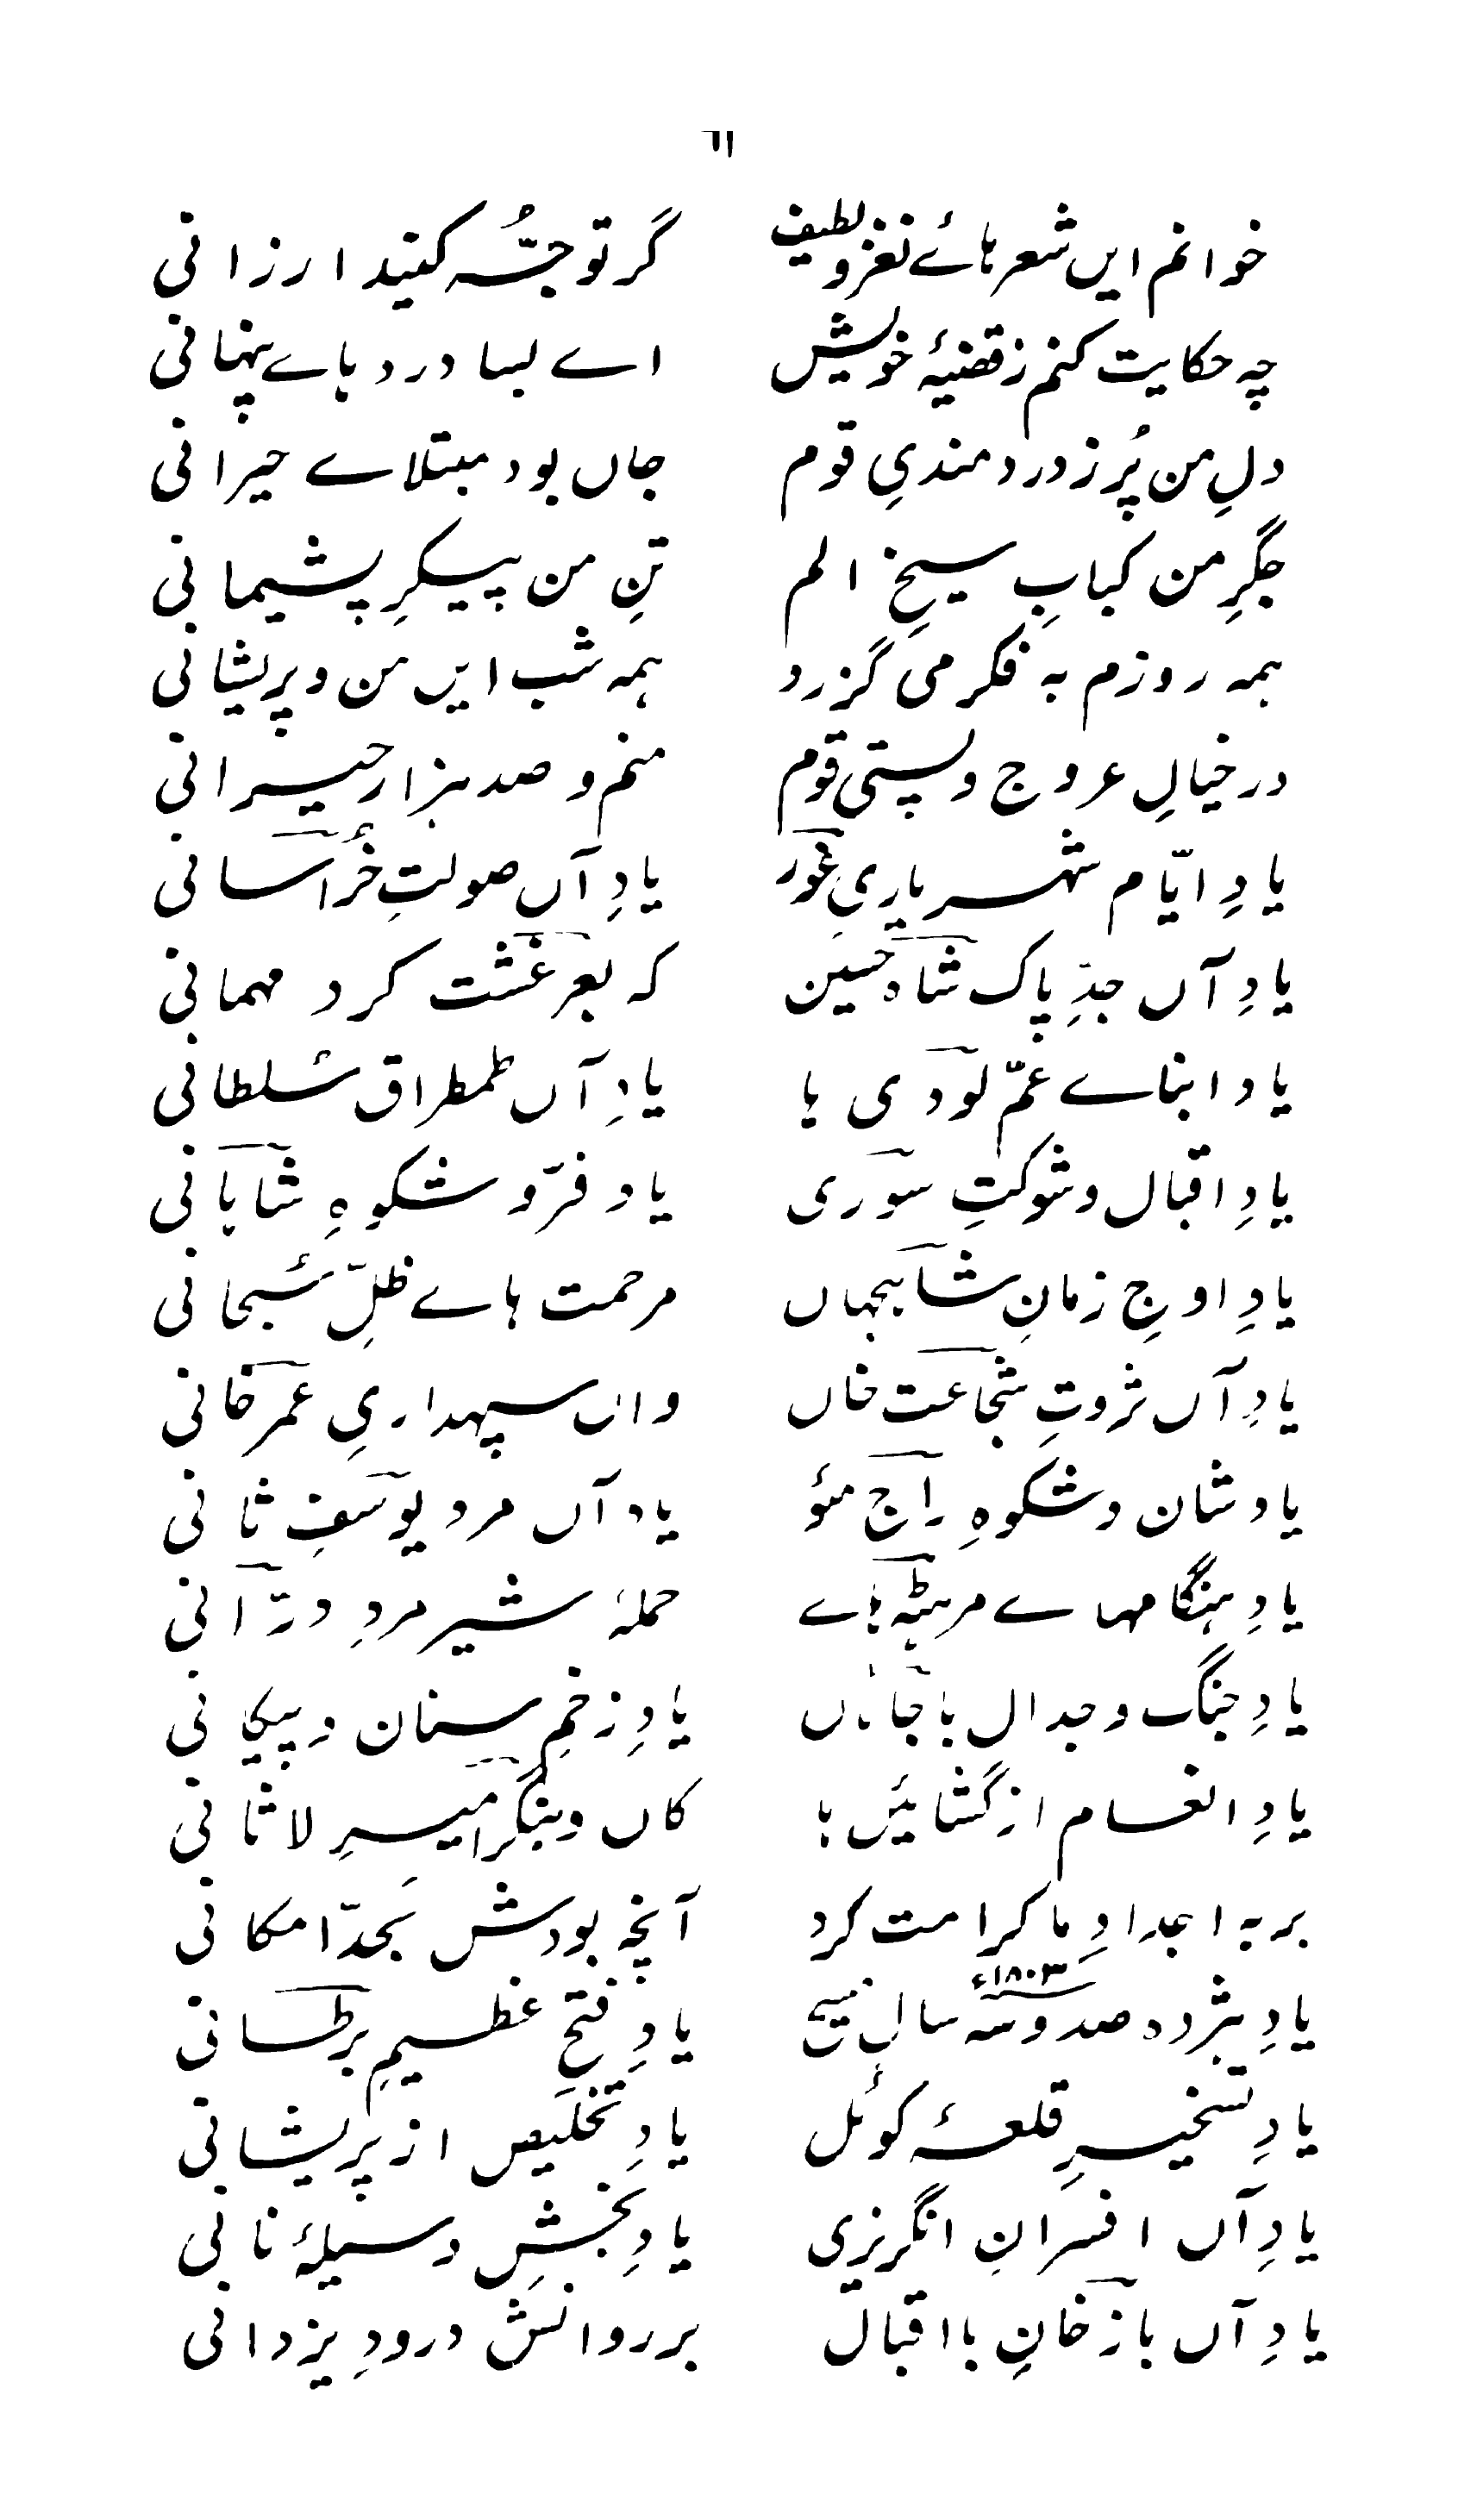 ٦١
خوانم ایں شعر ہائے نغز و لطیف گر توجّہ کنید ارزانی
چہ حکایت کنم ز قضیۂ خویش اے بسا درد ہاے پنہانی
دلِ من پُر ز دردمندیِ قوم جاں بود مبتلاے حیرانی
جگرِ من کبابِ سیخِ الم تنِ من پیکرِ پشیمانی
ہمہ روزم بہ فکر می گزرد ہمہ شب ایں من و پریشانی
در خیالِ عروج و پستیِ قوم منم و صد ہزار حیرانی
یادِ ایّام شہریاریِ غور یادِ آں صولتِ خُراسانی
یادِ آں جدِّ پاک شاہ حسین کہ بغرغشت کرد مہمانی
یاد ابناے عمِّ لودی ہا یادِ آں طمطراق سُلطانی
یادِ اقبال و شوکتِ سوری یاد فرّ و شکوہِ شاہانی
یادِ اوجِ زمانِ شاہجہاں مرحمت ہاے ظلِّ سُبحانی
یادِ آں ثروتِ شجاعت خاں واں سپہداریِ عمرخانی
یاد شان و شکوہِ راج مئو یاد آں مرد یوسفِ ثانی
یادِ ہنگامہاے مرہٹہ ہاے حملۂ شیر مردِ درّانی
یادِ جنگ و جدال با جاٹاں یادِ زخمِ سنان و پیکانی
یادِ انعام از گشائیں ہا کاں دیتگر امیرِ لاثانی
بر بہ اجدادِ ما کرامت کرد آنچہ بودش بحدّ امکانی
یادِ ہژدہ صد و سہ سالِ مسیح ۱۸۰۳ء یادِ فتح عظیم برطانی
یادِ تسخیرِ قلعۂ کوئل یادِ تخلیص از پریشانی
یادِ آں افسرانِ انگریزی یادِ بخششِ وسیلۂ نانی
یادِ آں باز خانِ با اقبال بر روانش درودِ یزدانی